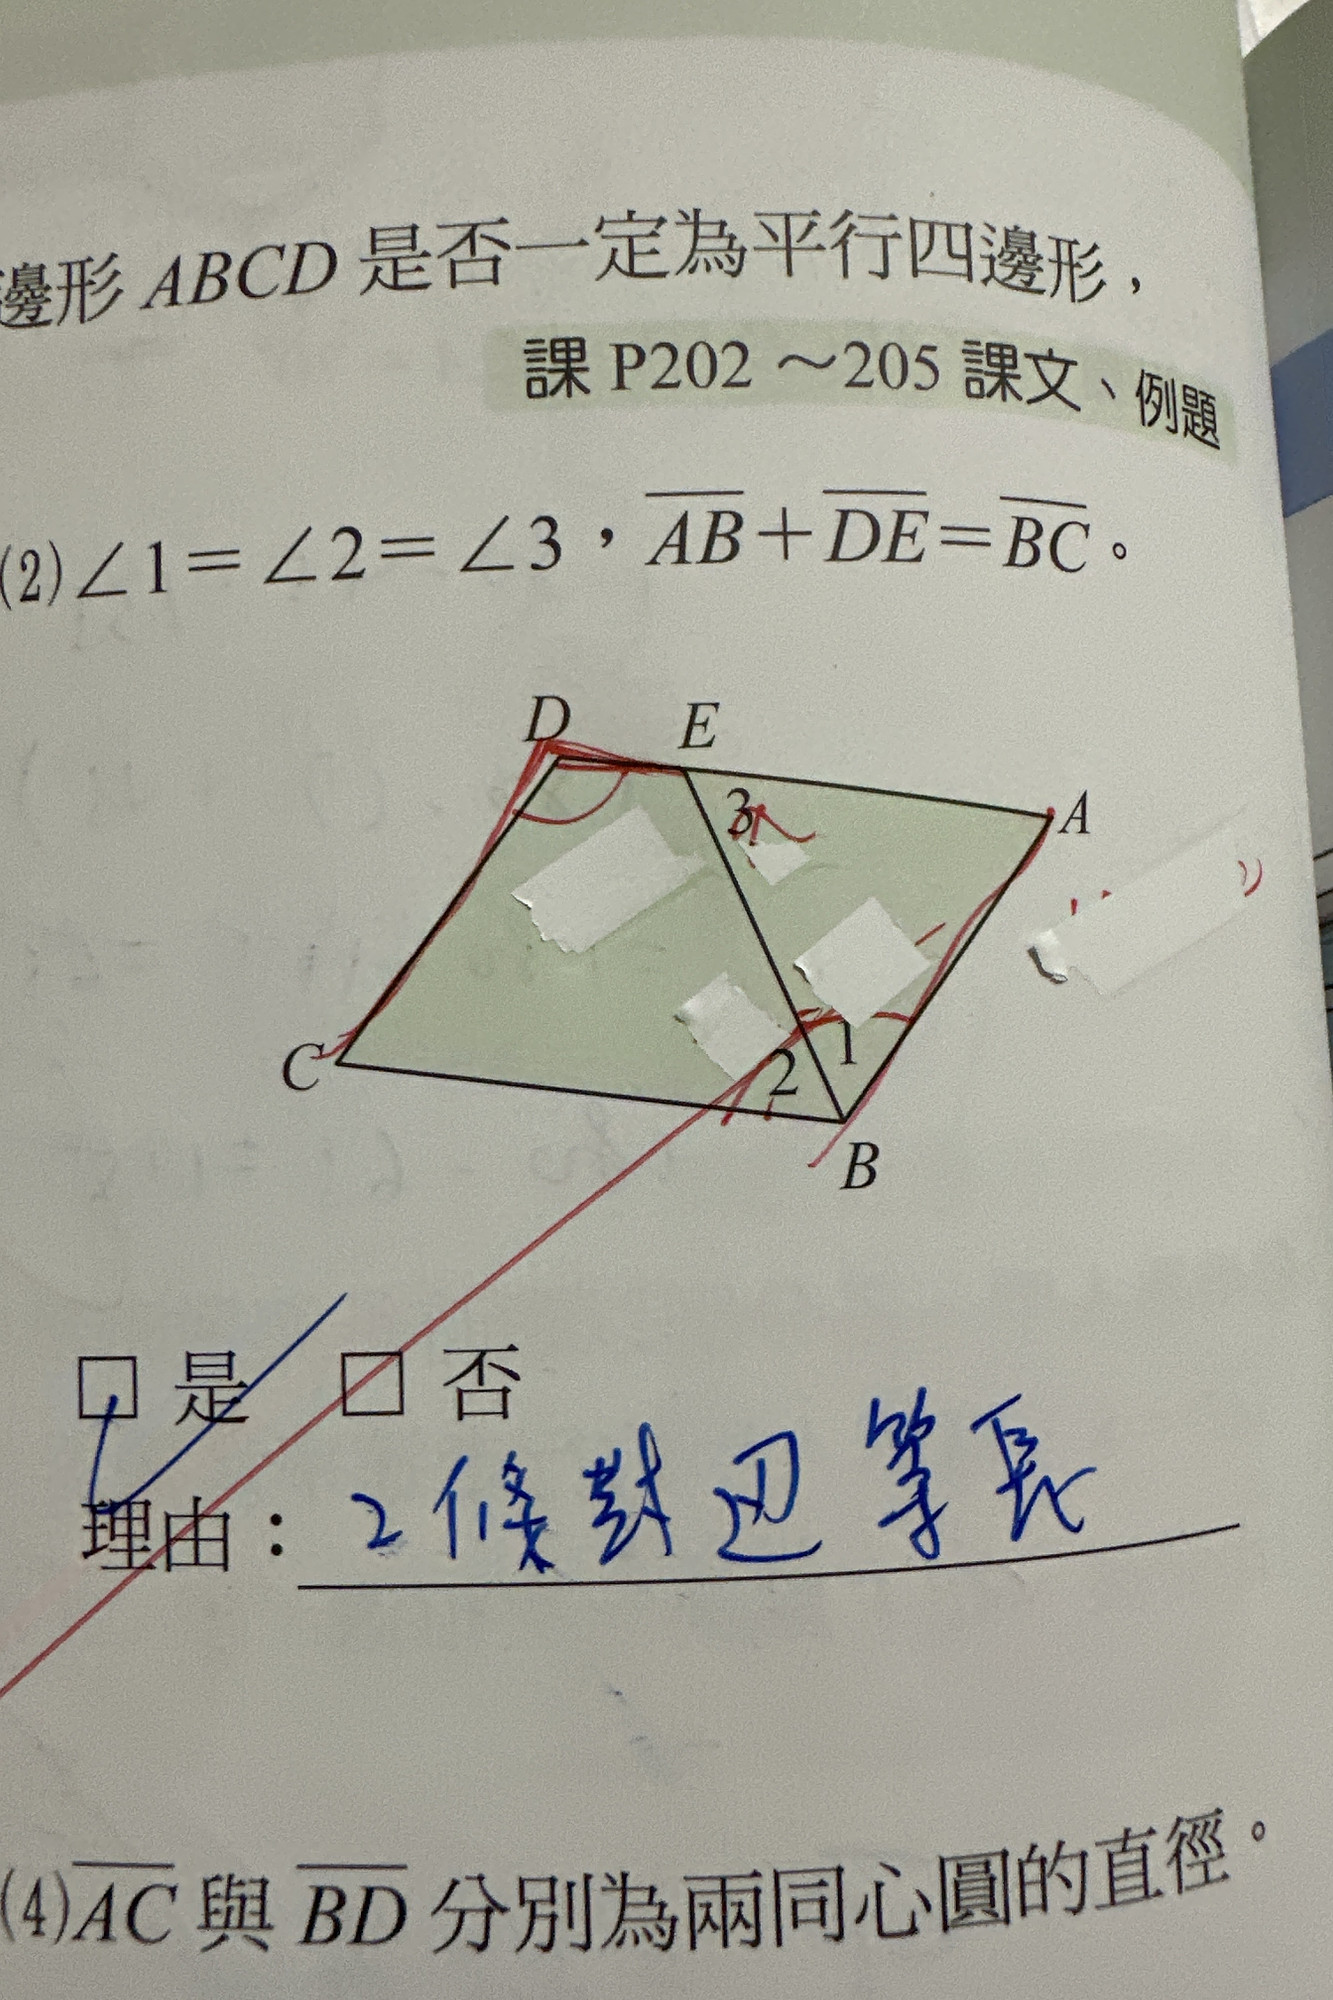 邊形 ABCD 是否一定為平行四邊形，
課 P202～205 課文、例題
(2)∠1＝∠2＝∠3，AB＋DE＝BC。
D E
3 A
C 2 1
B
□ 是 □ 否
理由：2條對边等長
(4)AC 與 BD 分別為兩同心圓的直徑。